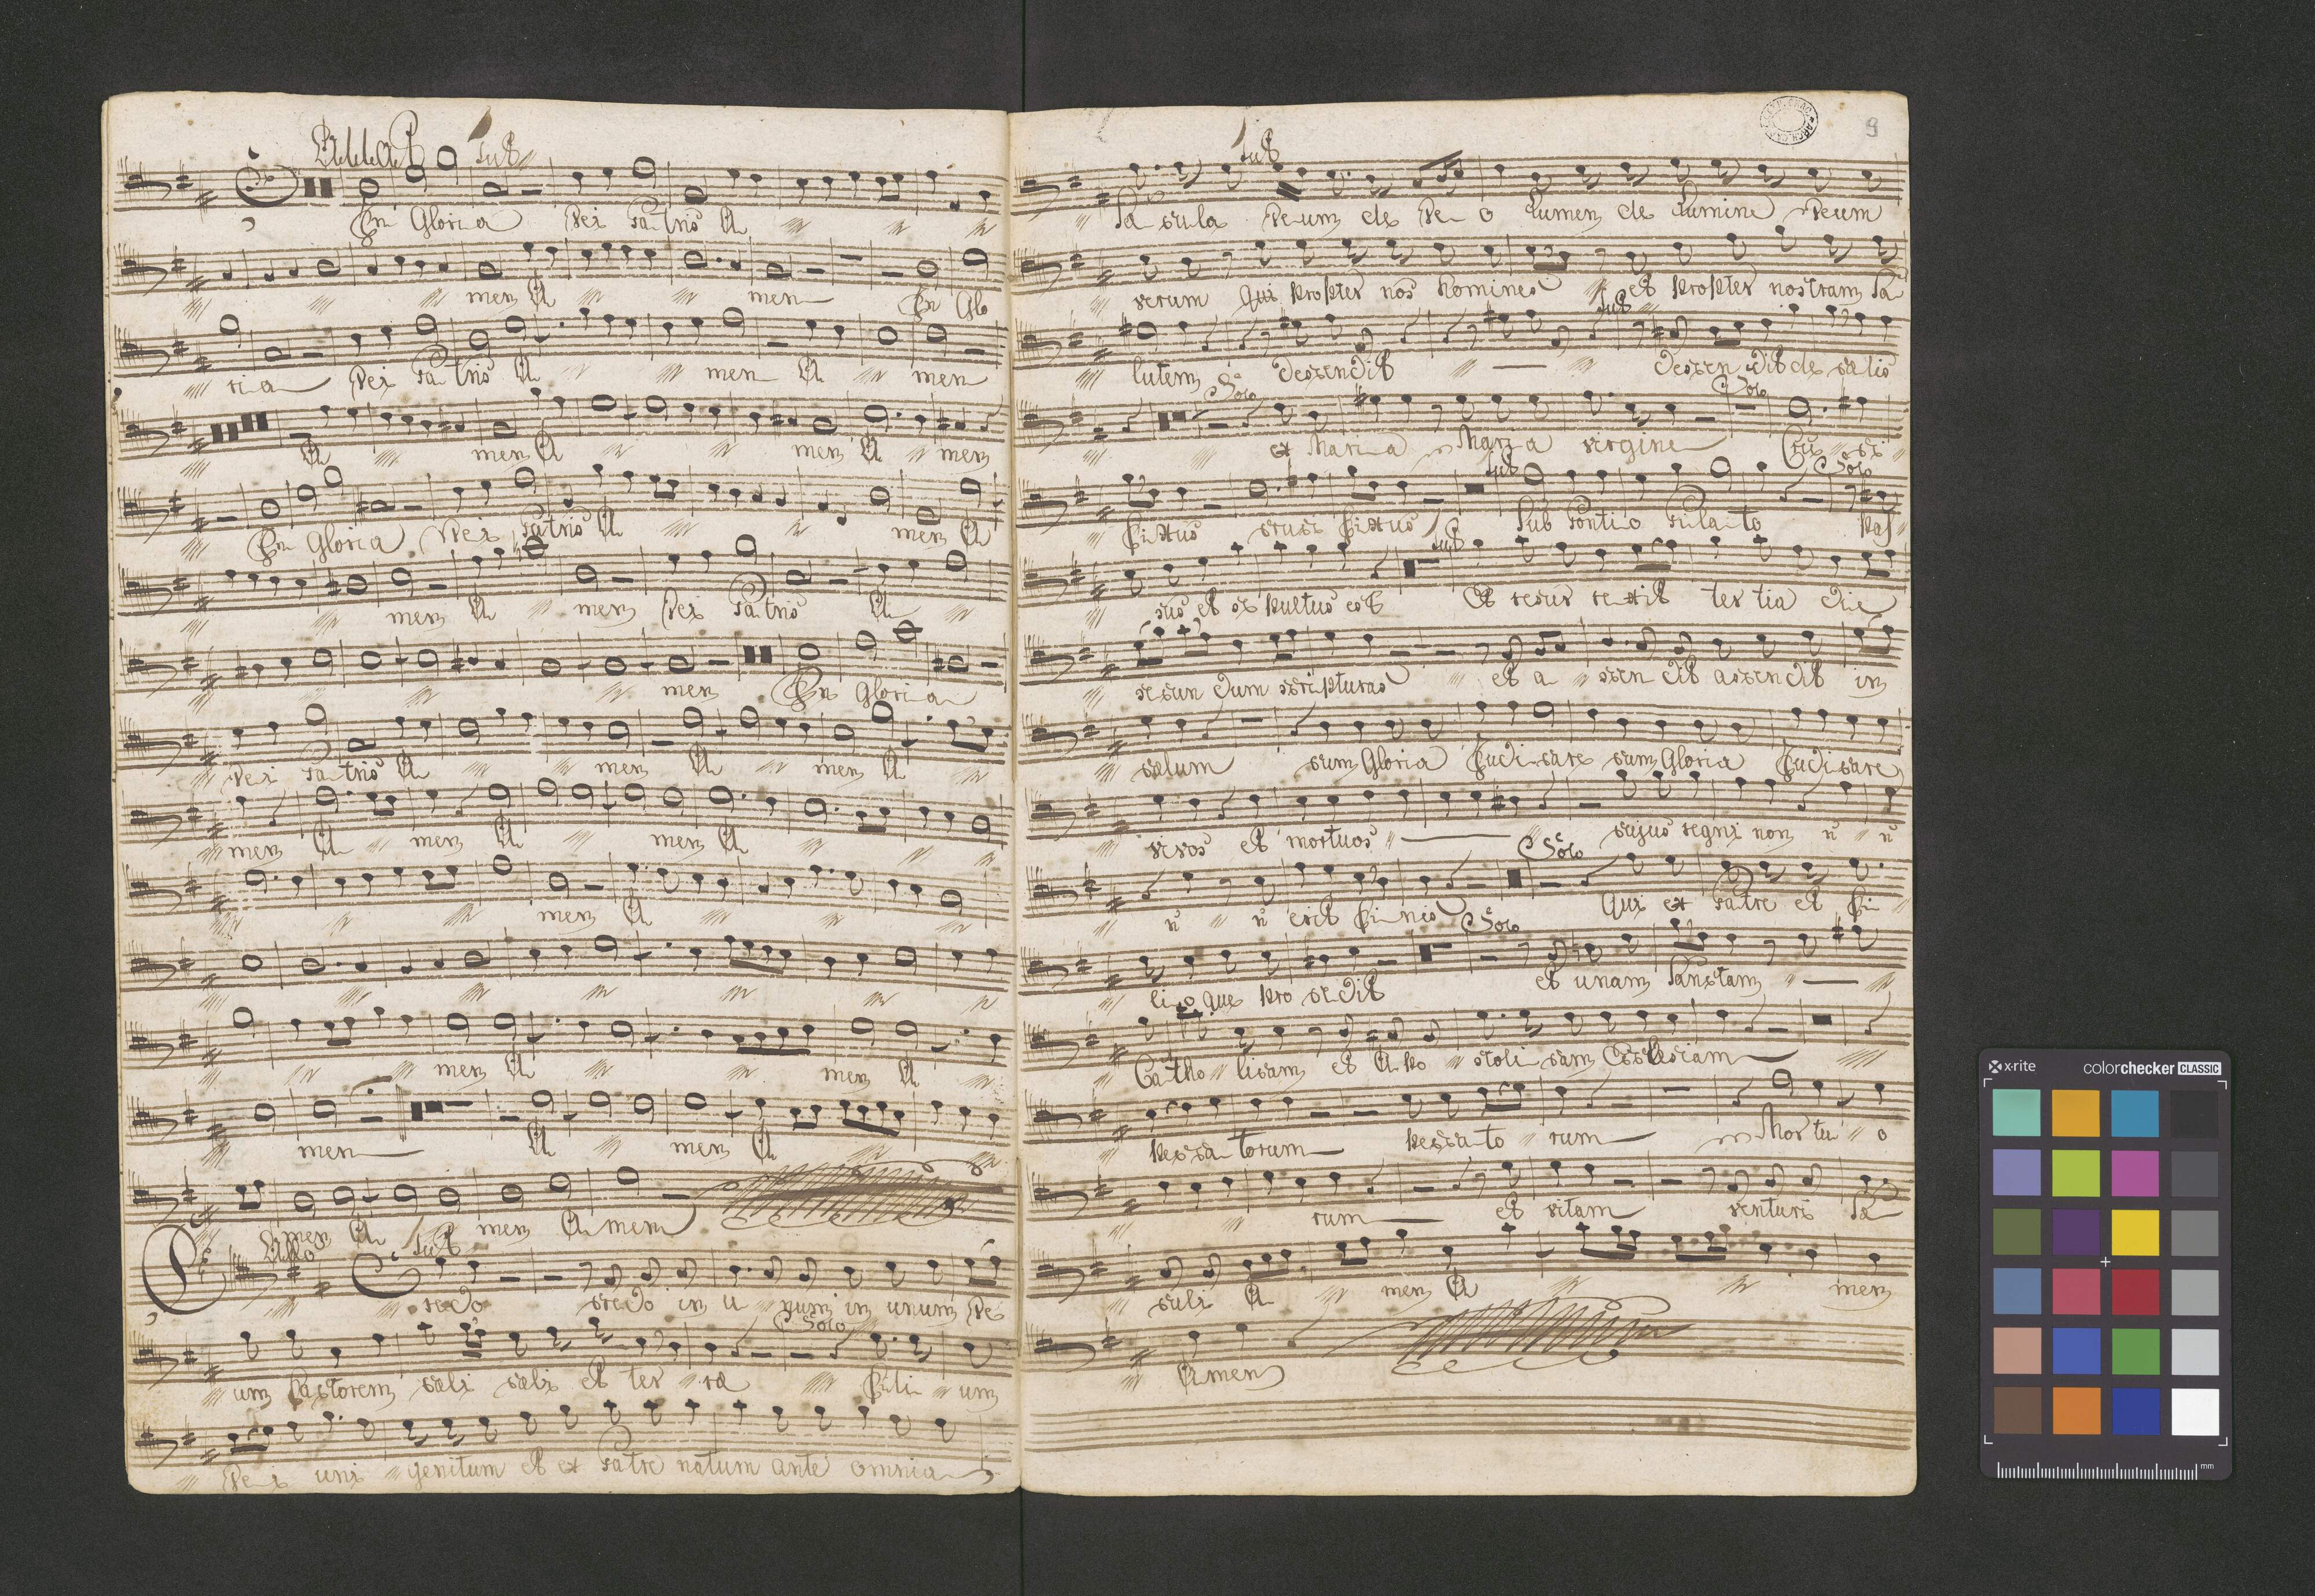 Allab: tutt
In Gloria Dei Patris A
men A men In Glo
ria Dei Patris A men A men
A men A men A men
In Gloria Dei Patris A men A
men A men Dei Patris A
men In Gloria
Dei Patris A men A men A
men A men A men A
men A
men A men A
men A men A
men A men A men
Allo tutt
Credo credo in u num in unum De
Solo
um factorem cæli cæli et ter ræ Fili um
Dei uni genitum et ex Patre natum ante omnia
9
tutt
Sæ cula Deum de De o Lumen de Lumine Deum
verum Qui propter nos homines et propter nostram Sa
tutt
lutem descendit descen dit de cælis
Solo Solo
ex Maria Maria virgine Cru ci
tutt Solo
fixus cruci fixus Sub Pontio Pilato pas
tutt
sus et se pultus est Et resur rexit tertia die
secun dum scripturas et a scen dit ascendit in
cælum cum Gloria Judi care cum Gloria Judicare
vivos et mortuos cujus regni non n n
Solo
n n erit finis Qui ex Patre et Fi
Solo
lioque pro cedit et unam Sanctam
Catho licam et Apo stoli cam Ecclesiam
peccatorum peccato rum Mortu o
rum et vitam venturi Sæ
culi A men A men
Amen